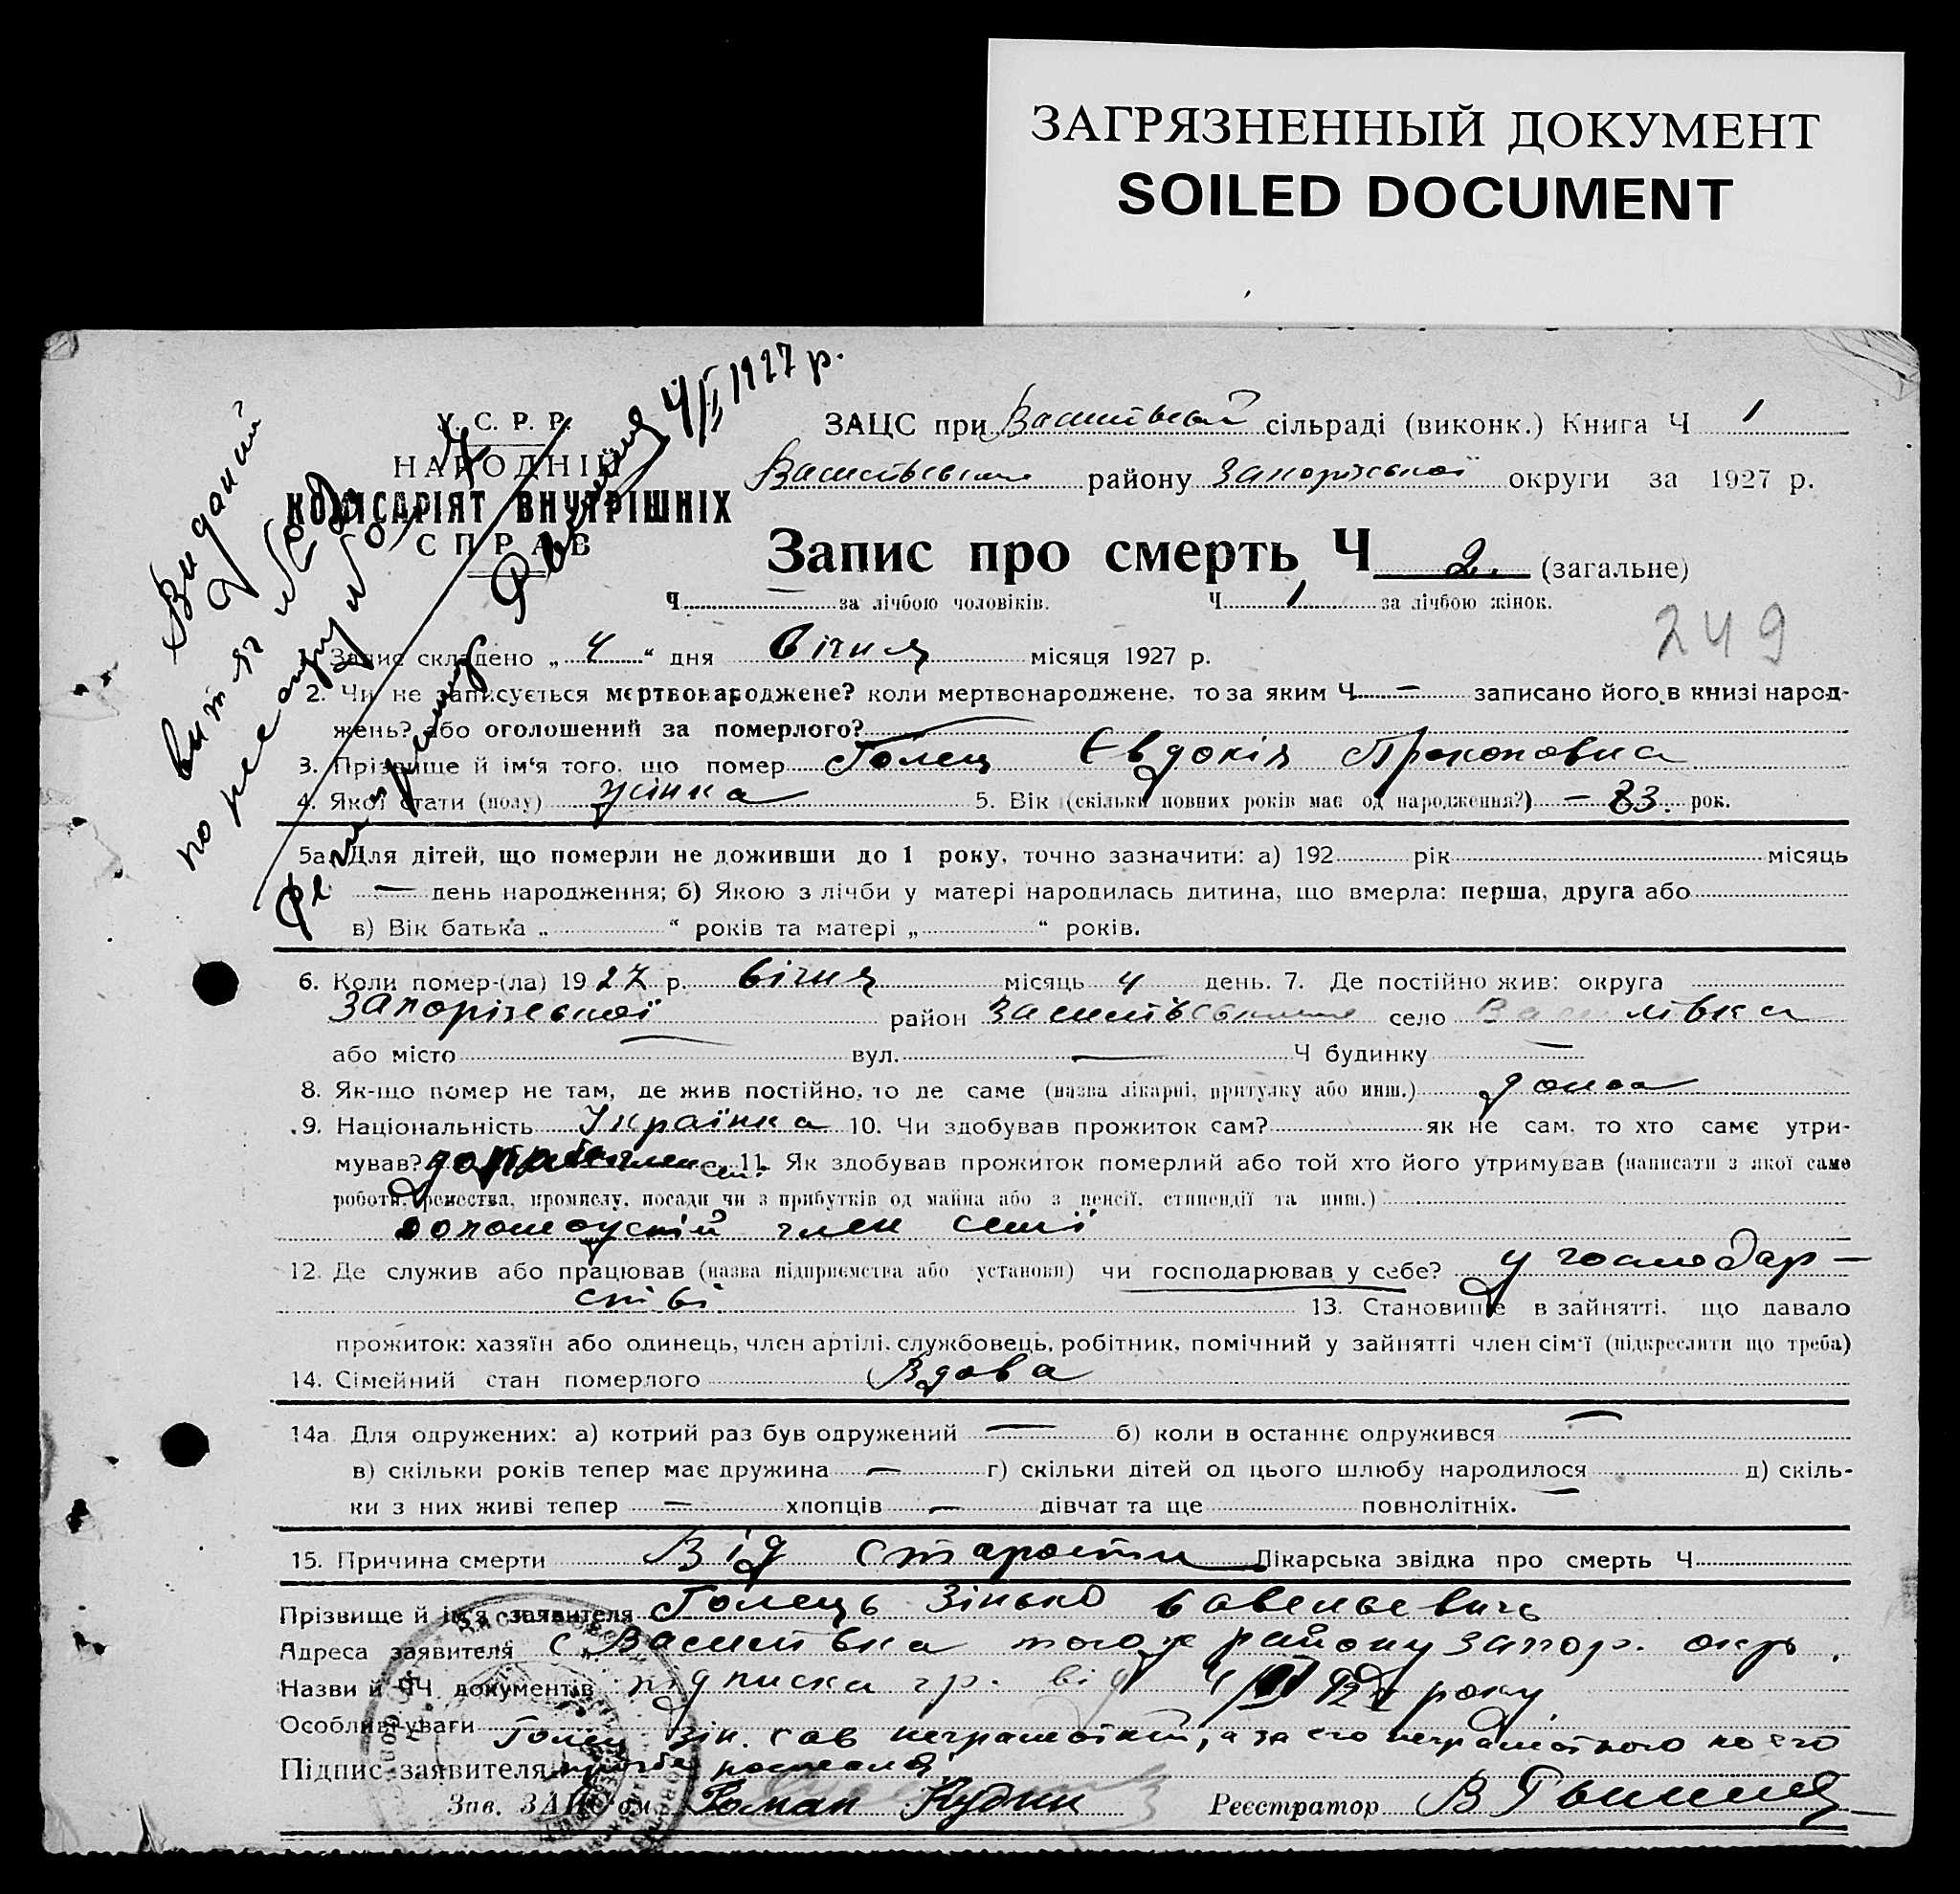 ЗАГРЯЗНЕННЫЙ ДОКУМЕНТ
SOILED DOCUMENT
У. С. Р. Р.
НАРОДНІЙ
КОМІСАРІЯТ ВНУТРІШНІХ
СПРАВ
Виданий
витяг
по реєстру
4/I 1927 р.
ЗАЦС при Василівській сільраді (виконк.) Книга Ч 1
Василівського району Запорізької округи за 1927 р.
Запис про смерть Ч 2. (загальне)
Ч — за лічбою чоловіків. Ч 1 за лічбою жінок.
249
Запис складено „ 4 “ дня Січня місяця 1927 р.
2. Чи не записується мертвонароджене? коли мертвонароджене, то за яким Ч — записано його в книзі народ-
жень? або оголошений за померлого? —
3. Прізвище й ім'я того, що помер Голец Євдокія Прокоповна
4. Якої стати (полу) жінка 5. Вік (скільки повних років має од народження?) — 83. рок.
5а. Для дітей, що померли не доживши до 1 року, точно зазначити: а) 192 рік місяць
— день народження; б) Якою з лічби у матері народилась дитина, що вмерла: перша, друга або
в) Вік батька „ “ років та матері „ “ років.
6. Коли помер-(ла) 1927 р. Січня місяць 4 день. 7. Де постійно жив: округа
Запорізької район Василівського село Василівка
або місто — вул. — Ч будинку —
8. Як-що помер не там, де жив постійно, то де саме (назва лікарні, притулку або инш.) дома
9. Національність Українка 10. Чи здобував прожиток сам? як не сам, то хто саме утри-
мував? член 11. Як здобував прожиток померлий або той хто його утримував (написати з якої саме
роботи, ремества, промислу, посади чи з прибутків од майна або з пенсії, стипендії та инш.)
член семї
12. Де служив або працював (назва підприємства або установи) чи господарював у себе? у господар-
стві 13. Становище в зайнятті, що давало
прожиток: хазяїн або одинець, член артілі, службовець, робітник, помічний у зайнятті член сім'ї (підкреслити що треба)
14. Сімейний стан померлого Вдова
14а. Для одружених: а) котрий раз був одружений — б) коли в останнє одружився —
в) скільки років тепер має дружина — г) скільки дітей од цього шлюбу народилося — д) скіль-
ки з них живі тепер — хлопців — дівчат та ще — повнолітніх.
15. Причина смерти Від старости Лікарська звідка про смерть Ч
Прізвище й ім'я заявителя Голець Зінько Савельевичь
Адреса заявителя с. Василівка того ж району Запор. окр.
Назви й ЧЧ документів підписка гр. від 4 року
Особливі уваги Голец Зін. Сав неграмотний, а за его неграмотного по его
Підпис заявителя прозьбе росписался
Зав. ЗАЦС'ом Роман Кудин Реєстратор В